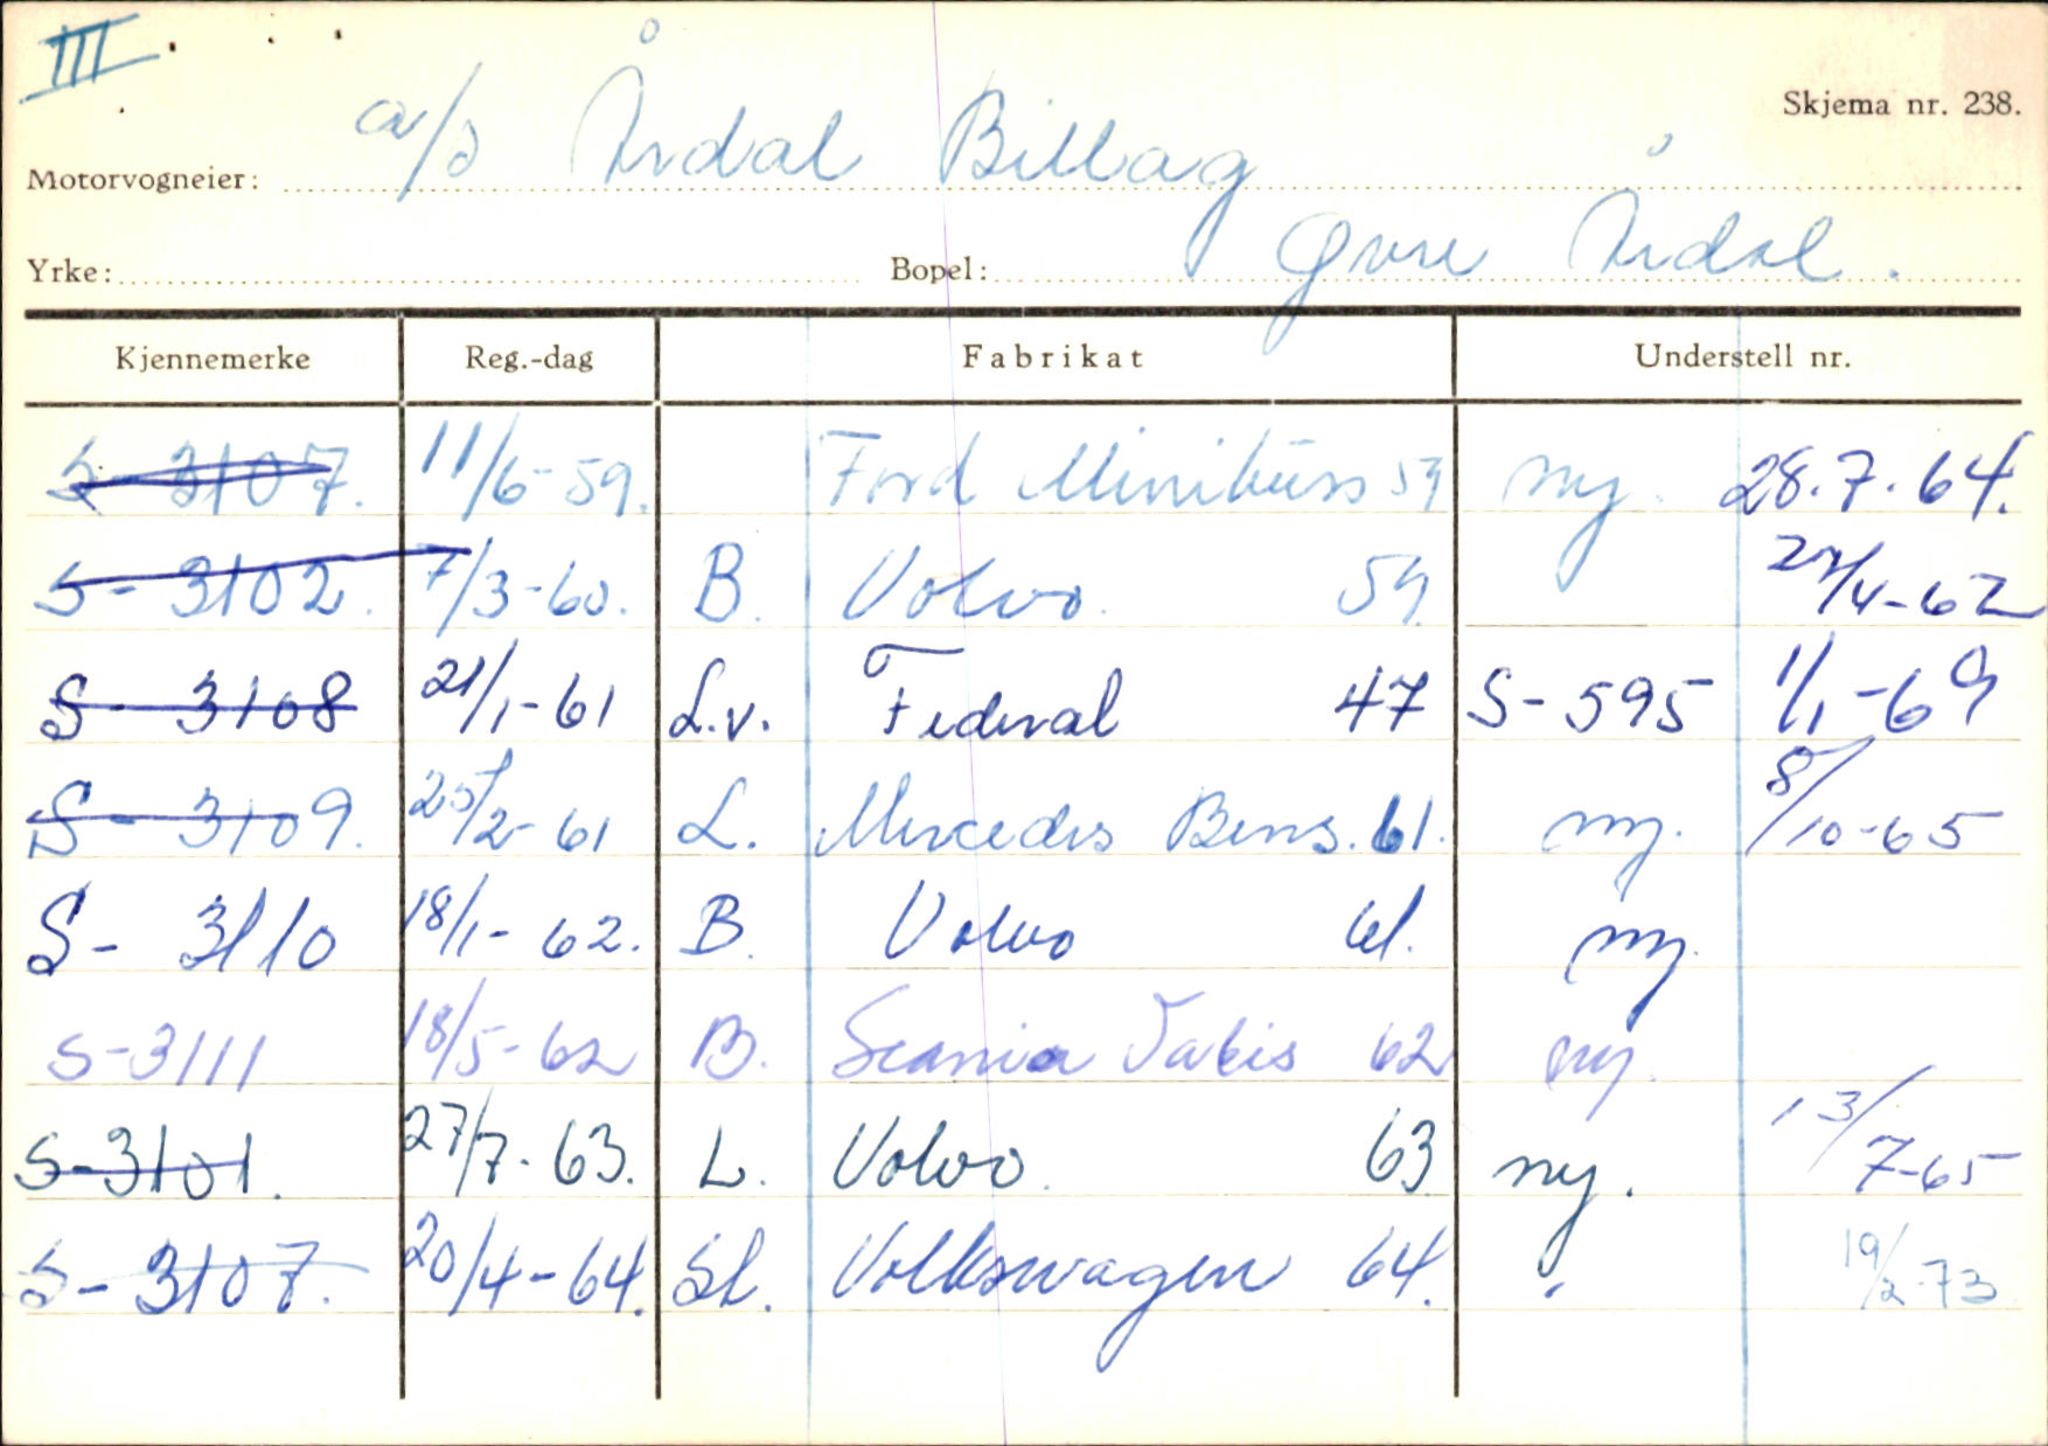 III
Skjema nr. 238.
Motorvogneier: a/s Årdal Billag
Yrke: Bopel: Øvre Årdal.
Kjennemerke Reg.-dag Fabrikat Understell nr.
S-3107. 11/6-59. Ford Minibuss 59 ny. 28.7.64.
S-3102. 7/3-60. B. Volvo. 59 /4-62
S-3108 21/1-61 L.v. Federal 47 S-595 1/1-69
S-3109. 25/2-61 L. Mercedes Bens. 61. ny. 8/10-65
S-3110 18/1-62. B. Volvo 61. ny.
S-3111 18/5-62 B. Scania Vabis 62 ny.
S-3101. 27/7-63. L. Volvo. 63 ny. 13/7-65
S-3107. 20/4-64. St. Volkswagen 64. " 19/2-73